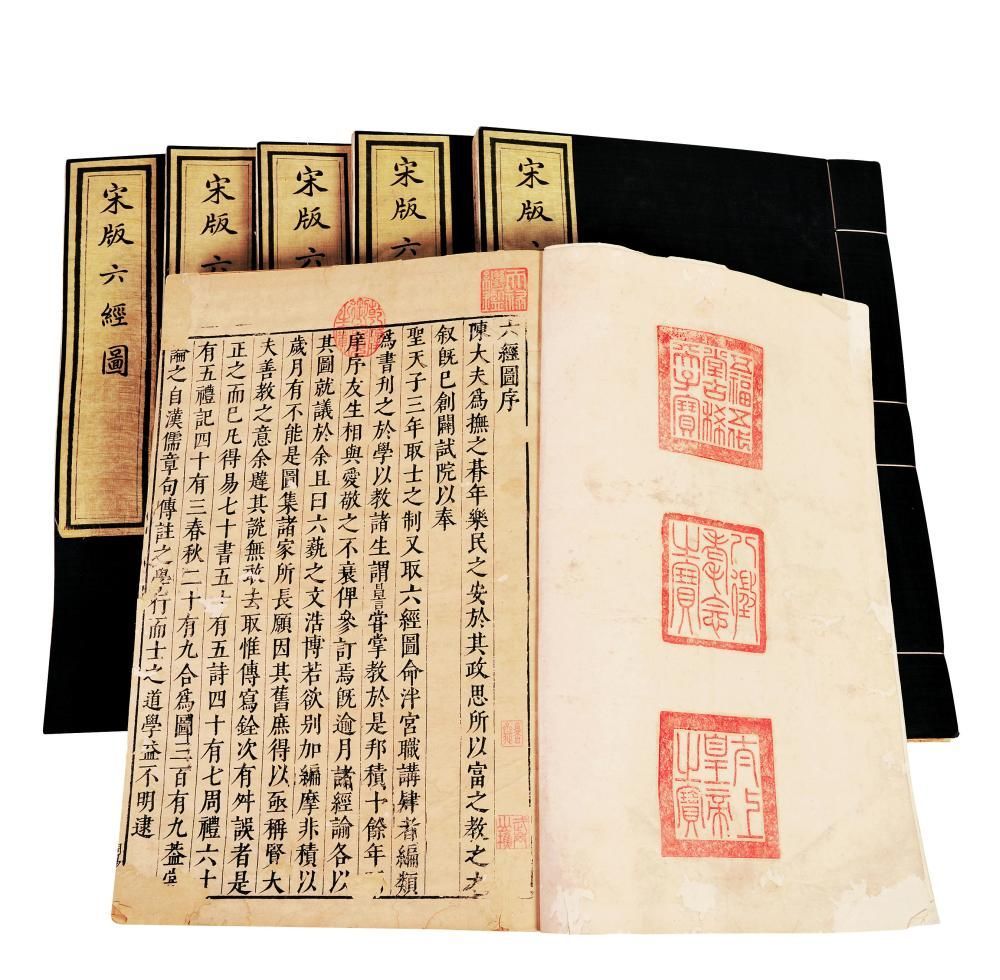 宋版六經圖
宋版六
宋版六
宋版六
宋版
六經圖序
陳大夫為撫之朞年樂民之安於其政思所以富之教之
敘旣已創闢試院以奉
聖天子三年取士之制又取六經圖命泮宮職講肄者編類
為書刋之於學以教諸生謂昌言嘗掌教於是邦積十餘年
庠序友生相與愛敬之不衰俾參訂焉旣逾月諸經論各以
其圖就議於余且曰六藝之文浩博若欲别加編摩非積以
歲月有不能是圖集諸家所長願因其舊庶得以亟稱賢大
夫善教之意余韙其說無敢去取惟傳寫銓次有舛誤者是
正之而已凡得易七十書五十有五詩四十有七周禮六十
有五禮記四十有三春秋二十有九合為圖三百有九葢嘗
論之自漢儒章句傳註之學行而士之道學益不明逮
天祿繼鑑
乾隆御覽之寶
五福五代堂古稀天子寶
八徵耄念之寶
太上皇帝之寶